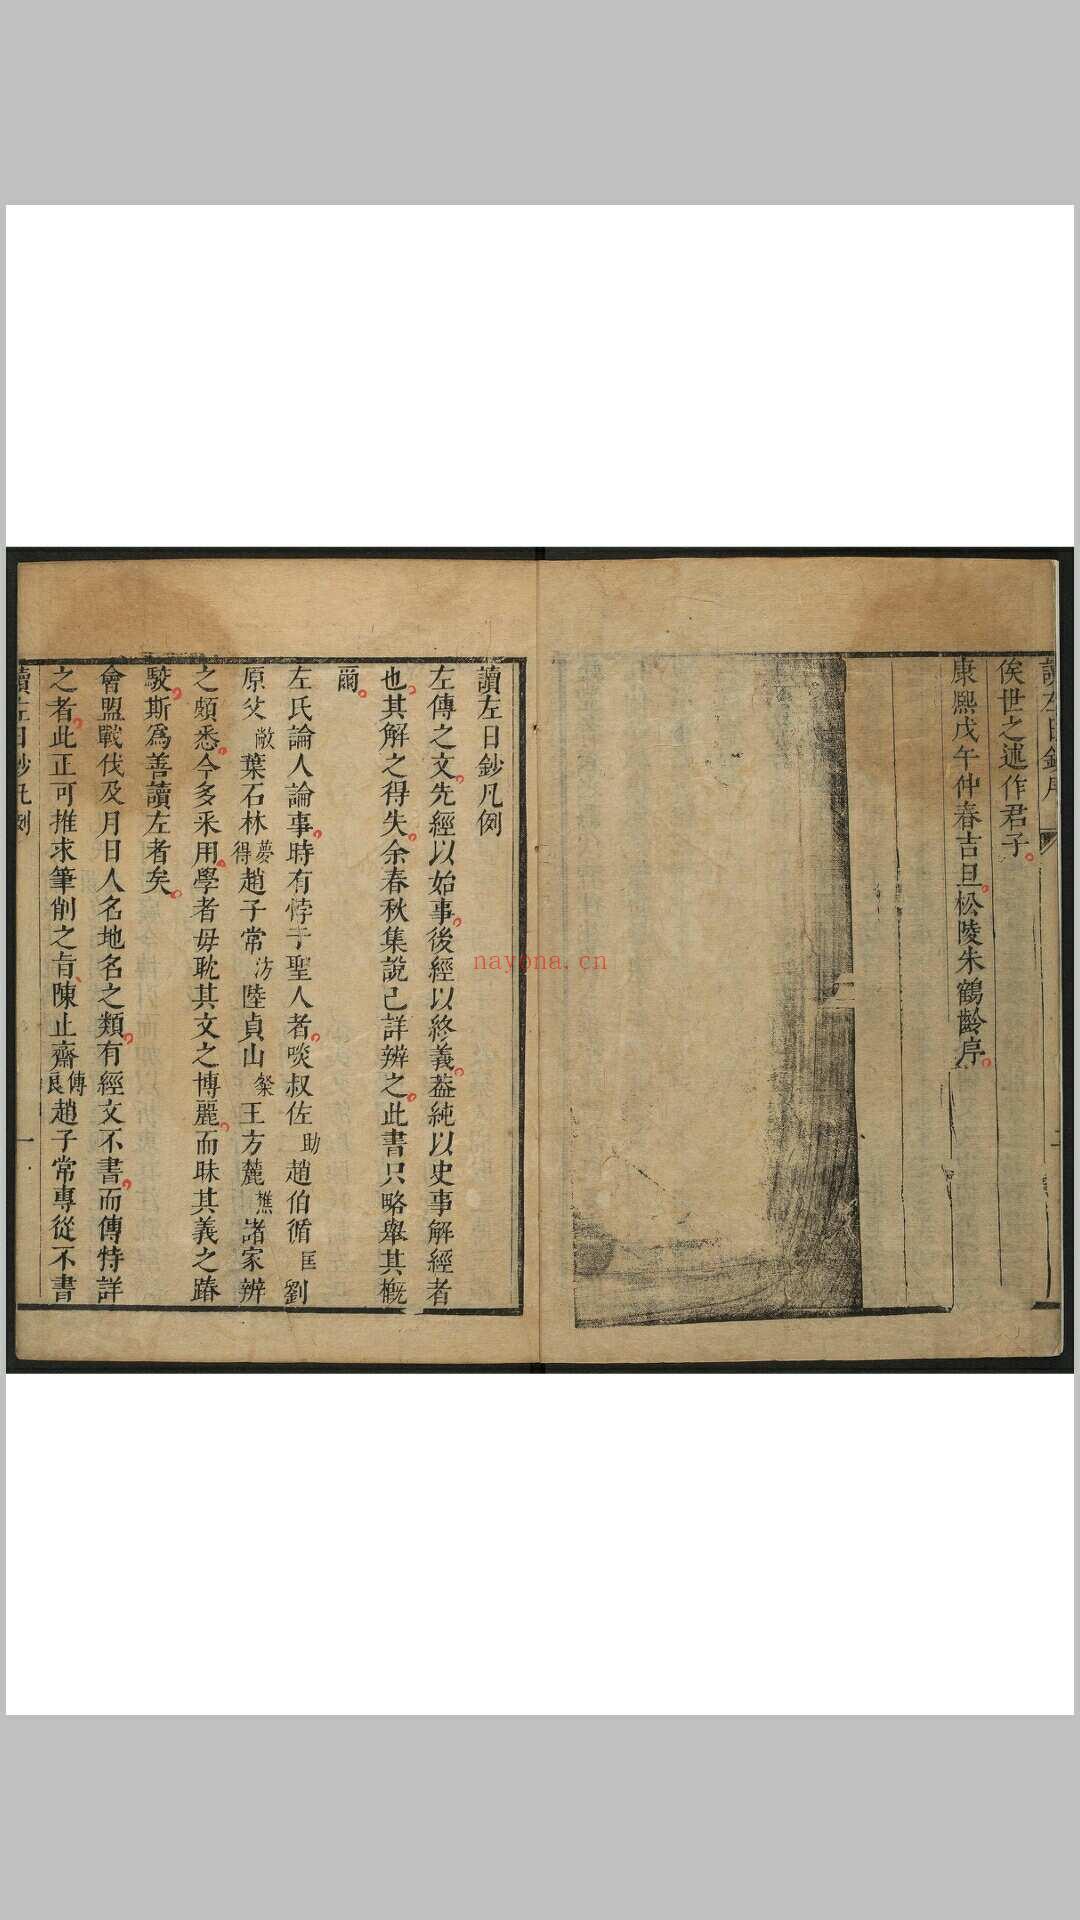 讀左日鈔序
俟世之述作君子
康熙戊午仲春吉旦松陵朱鶴齡序
讀左日鈔凡例
左傳之文先經以始事後經以終義葢純以史事解經者
也其解之得失余春秋集說已詳辨之此書只略舉其槪
爾
左氏論人論事時有悖于聖人者啖叔佐助趙伯循匡劉
原父敞葉石林夢得趙子常汸陸貞山粲王方麓樵諸家辨
之頗悉今多采用學者毋耽其文之博麗而昧其義之踳
駮斯爲善讀左者矣
會盟戰伐及月日人名地名之類有經文不書而傳特詳
之者此正可推求筆削之旨陳止齋傅良趙子常專從不書
讀左日鈔凡例
一
nayona.cn